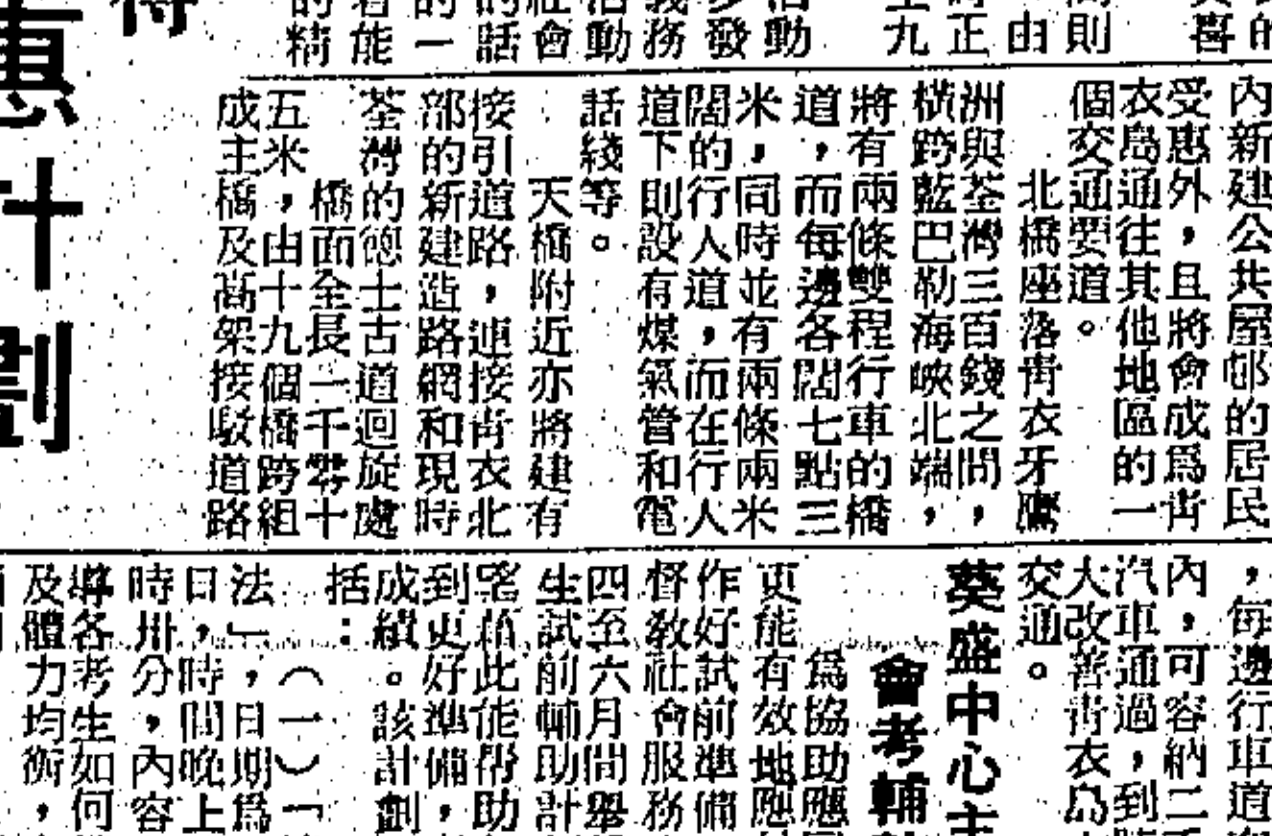 內新建公共屋邨的居民
受惠外，且將會成爲靑
衣島通往其他地區的一
個交通要道。
北橋座落靑衣牙鷹
洲與荃灣三百錢之間，
橫跨藍巴勒海峽北端，
將有兩條雙程行車的橋
道，而每邊各闊七點三
米，同時並有兩條兩米
闊的行人道，而在行人
道下則設有煤氣管和電
話綫等。
天橋附近亦將建有
接引道路，連接靑衣北
部的新建造路網和現時
荃灣的德士古道迴旋處
橋面全長一千零十
五米，由十九個橋跨組
成主橋及高架接駁道路
，每邊行車道
內，可容納二
汽車通過，到
大改善靑衣島
交通。
葵盛中心主
會考輔
爲協助應
更能有效地應
作好試前準備
督敎社會服務
四至六月間舉
生試前輔助計
能藉此能帮助
到更好準備，
成績。該計劃
括：
（一）「
法」，日期爲
日，時間晚上
時卅分，內容
導各考生如何
及體力均衡，
惠計劃